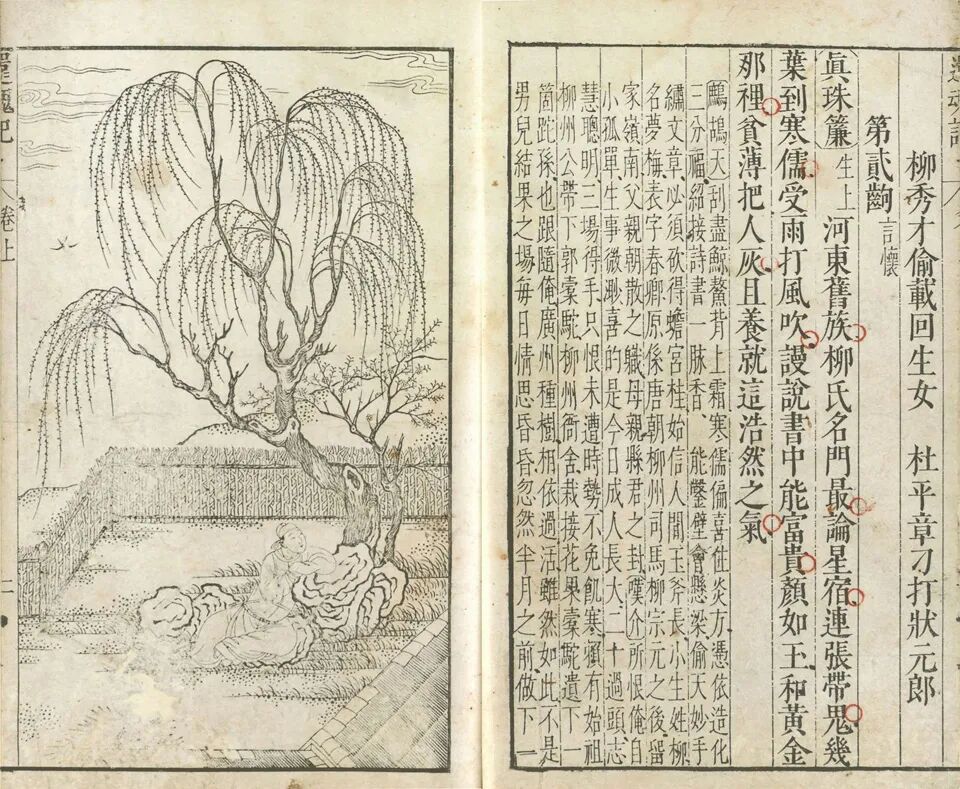 柳秀才偷載回生女 杜平章刁打狀元郎
第貳齣 言懷
眞珠簾 生上 河東舊族柳氏名門最論星宿連張帶鬼幾
葉到寒儒受雨打風吹謾說書中能富貴顏如玉和黃金
那裡貧薄把人灰且養就這浩然之氣
鷓鴣天 刮盡鯨鰲背上霜寒儒偏喜住炎方憑依造化
三分福紹接詩書一脉香能鑿壁會懸梁偷天妙手
繡文章必須砍得蟾宮桂始信人間玉斧長小生姓柳
名夢梅表字春卿原係唐朝柳州司馬柳宗元之後留
家嶺南父親朝散之職母親縣君之封嘆介所恨俺自
小孤單生事微渺喜的是今日成人長大二十過頭志
慧聰明三場得手只恨未遭時勢不免飢寒賴有始祖
柳州公帶下郭橐駝柳州衙舍栽接花果橐駝遺下一
箇跎孫也跟隨俺廣州種樹相依過活雖然如此不是
男兒結果之場每日情思昏昏忽然半月之前做下一
還魂記 卷上 二